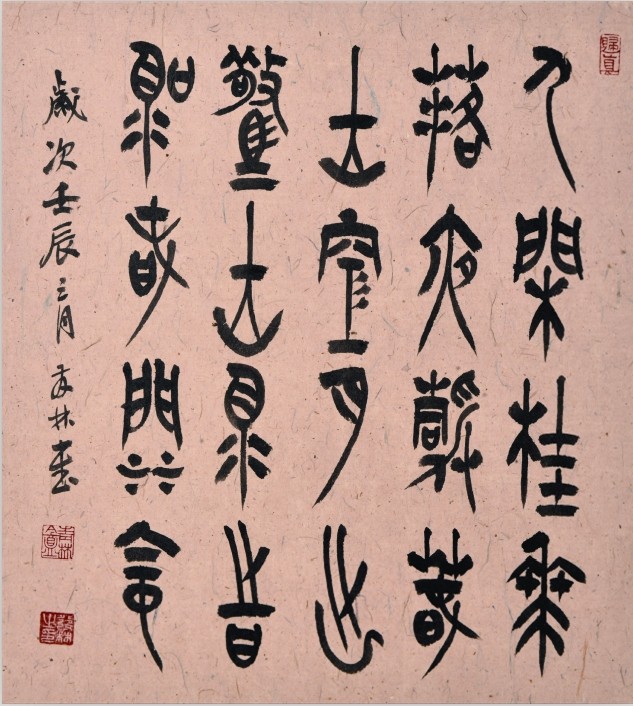 人閑桂華
落夜靜春
山空月出
驚山鳥時
鳴春澗中
歲次壬辰三月 林書